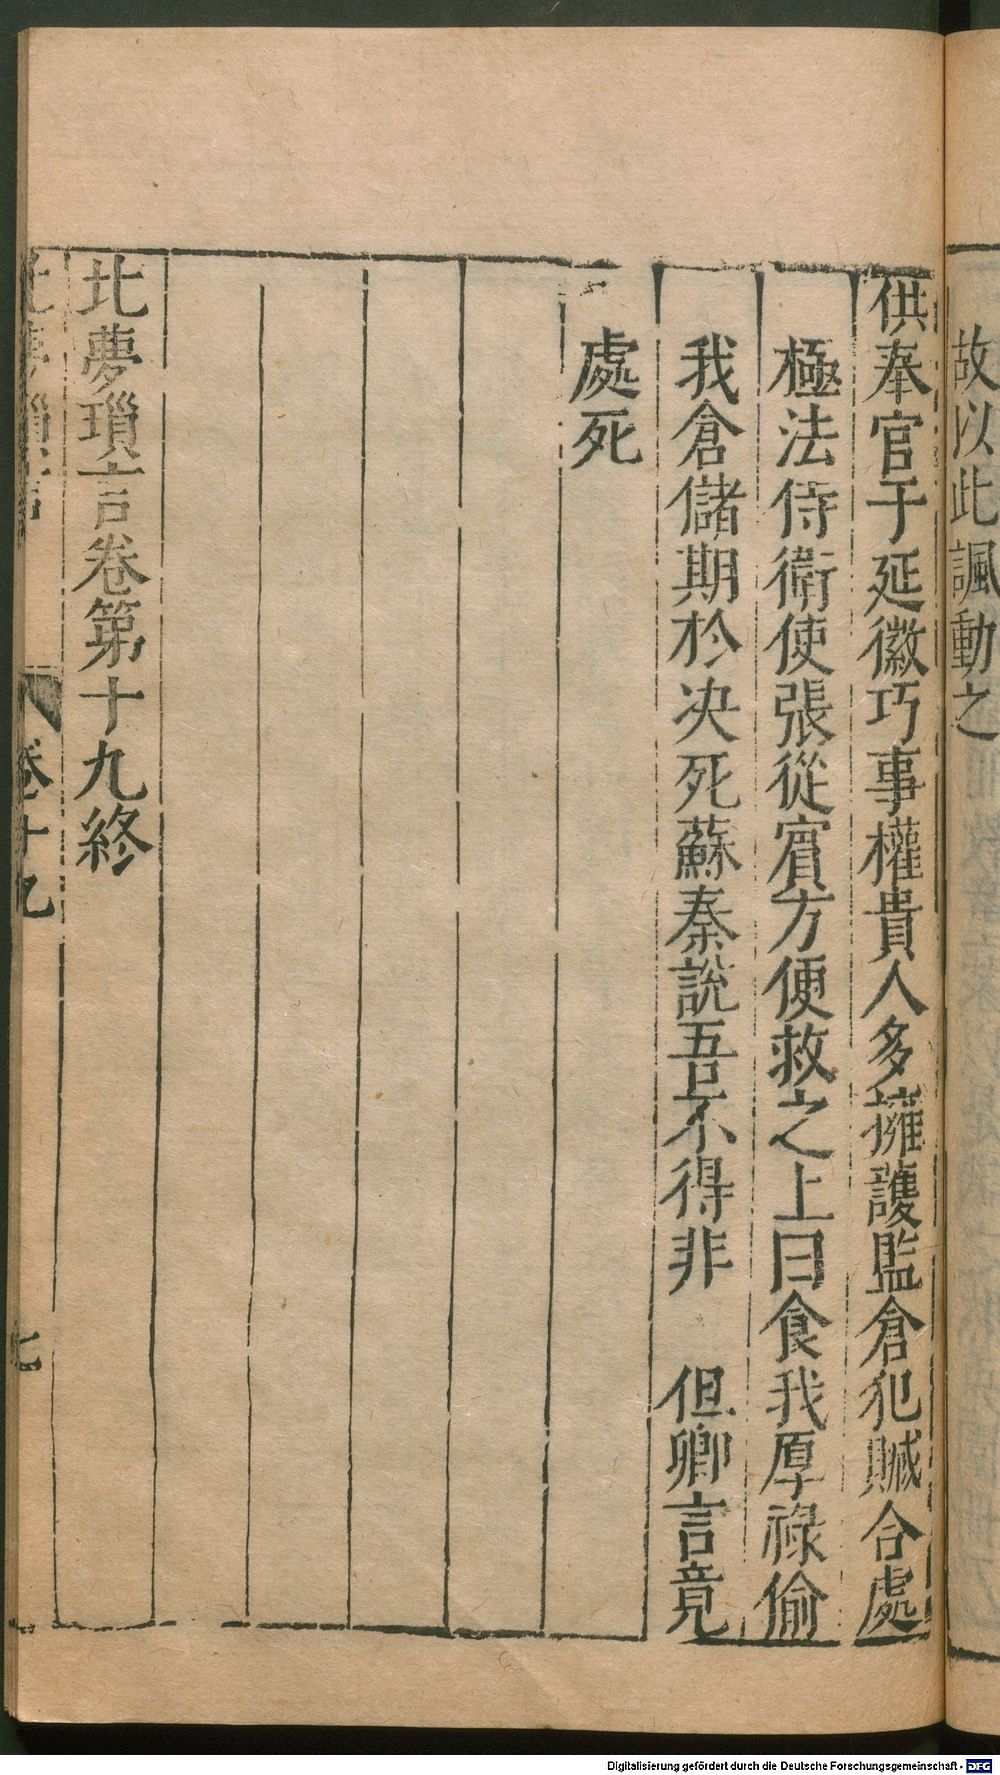 故以此諷動之
供奉官于延徽巧事權貴人多擁護監倉犯贓合處
極法侍衛使張從賓方便救之上曰食我厚祿偷
我倉儲期於决死蘇秦說吾不得非　但卿言竟
處死
北夢瑣言卷第十九終
卷十九
七
Digitalisierung gefördert durch die Deutsche Forschungsgemeinschaft - DFG